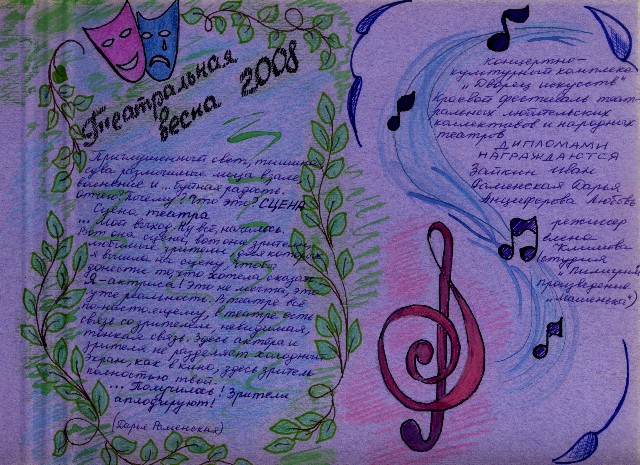 Театральная
весна 2008
Приглушенный свет, тишина,
едва различимые лица в зале,
волнение и... жуткая радость.
Отчего? Почему? Что это? СЦЕНА
Сцена театра
... Мой выход. Ну всё, началось.
Вот она сцена, вот они зрители
любимые зрители для которых
я вышла на сцену, чтобы
донести то что хотела сказать.
Я - актриса! Это не мечта, это
уже реальность. В театре всё
по-настоящему, в театре есть
связь со зрителем, невидимая,
тонкая связь. Здесь актёра и
зрителя не разделяет холодный
экран, как в кино, здесь зритель
полностью твой.
... Получилось! Зрители
аплодируют!
(Дарья Раменская)
Концертно-
культурный комплекс
"Дворец искусств"
Краевой фестиваль театральных
любительских
коллективов и народных
театров
ДИПЛОМАМИ
НАГРАЖДАЮТСЯ
Заткин Иван
Раменская Дарья
Анциферова Любовь
режиссер
Елена Климова
студия
"Пилигрим"
произведение
"Машенька")